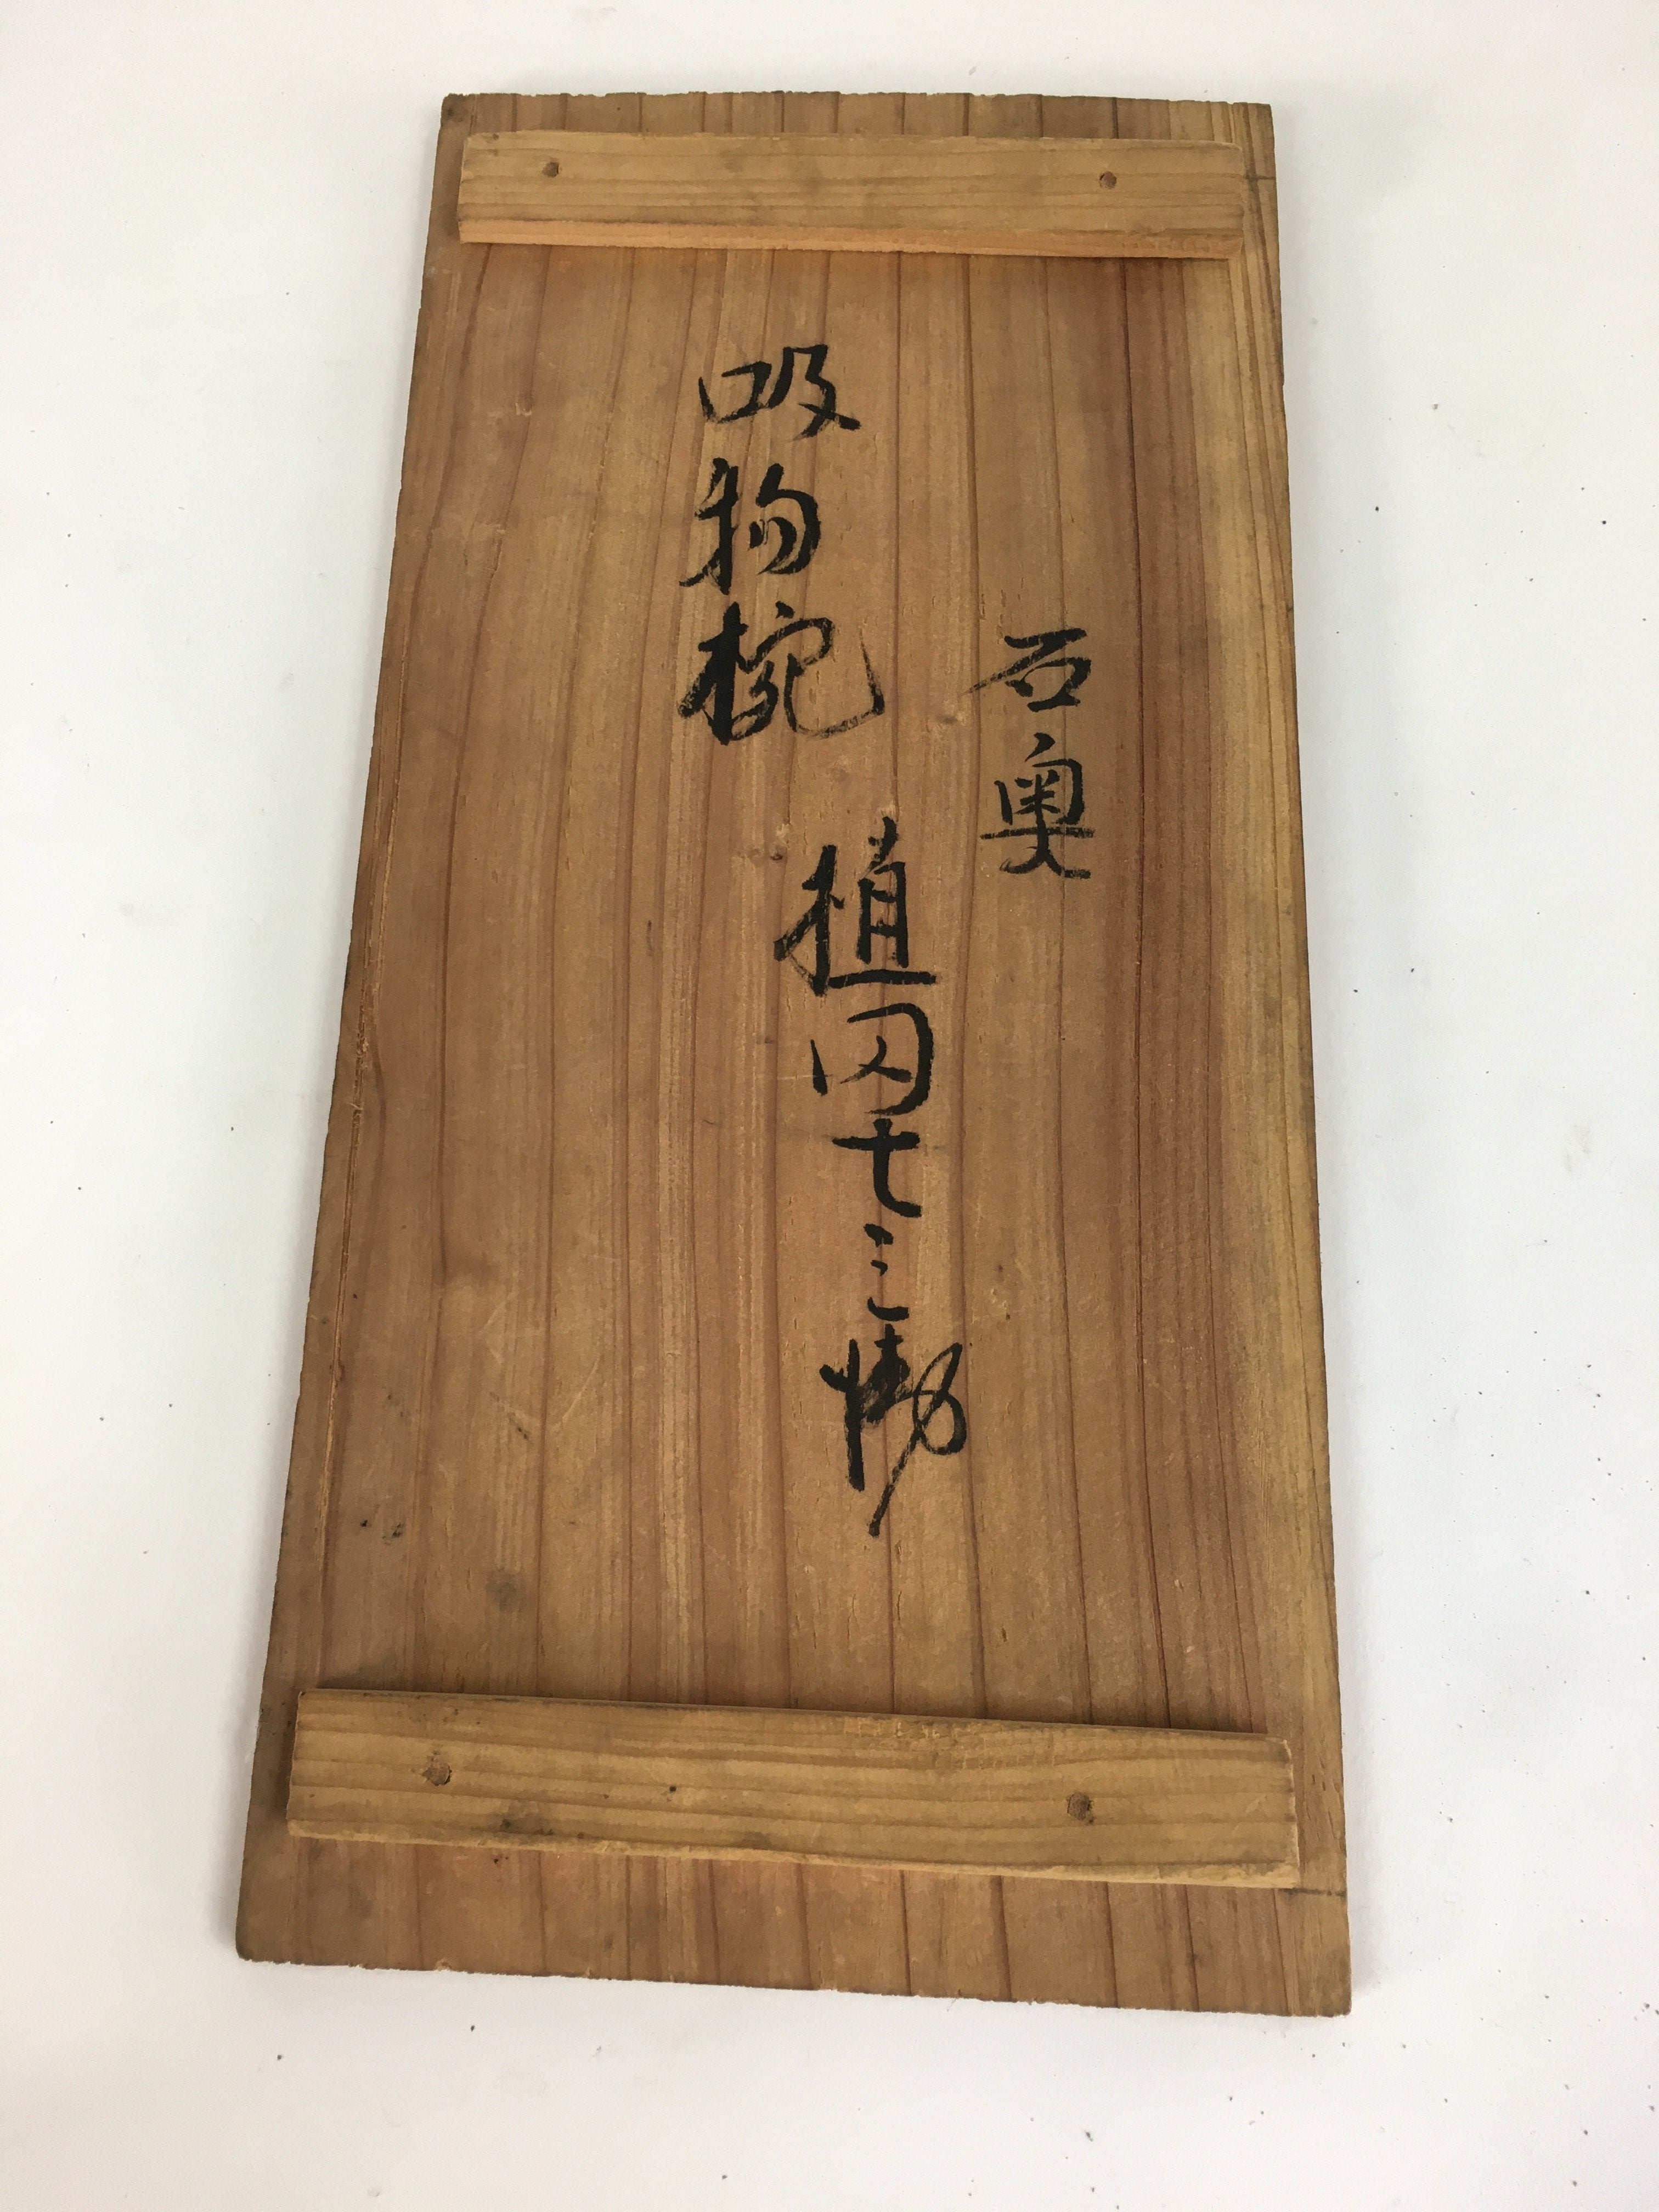 石奥
植田七三郎
吸物椀